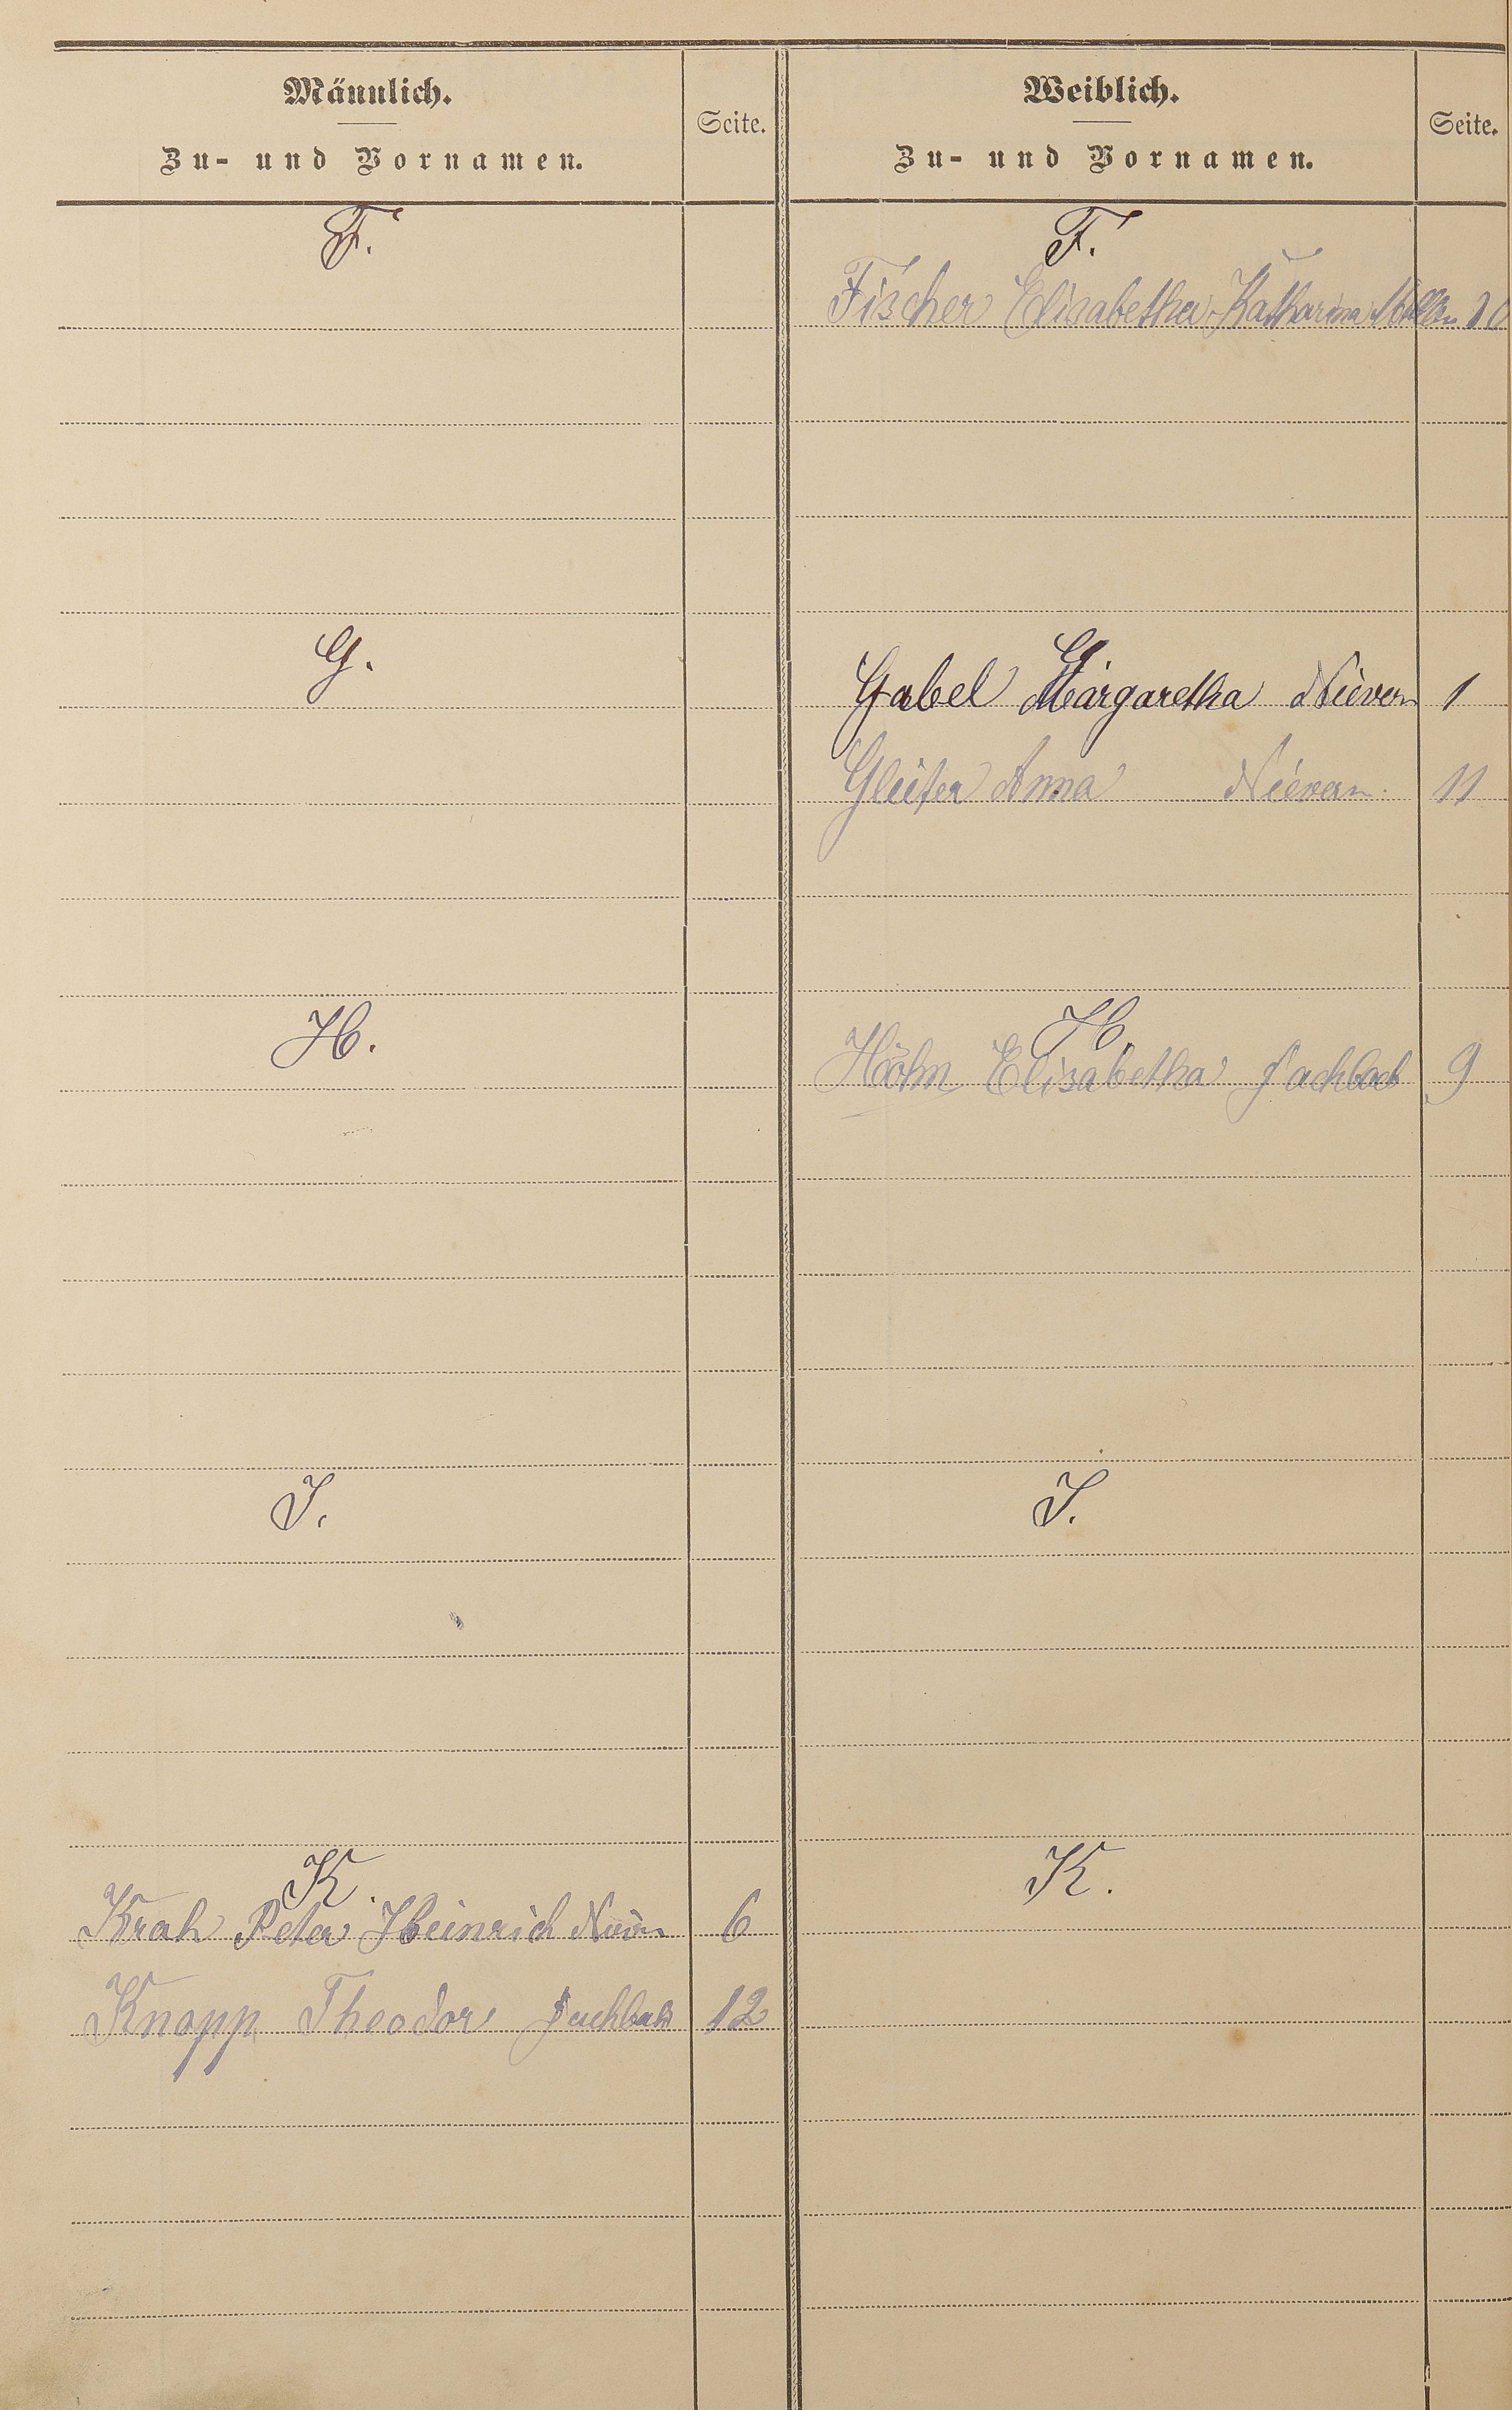 Männlich.
Zu- und Vornamen.
Seite.
Weiblich.
Zu- und Vornamen.
Seite.
F.
F.
Fischer Elisabetha Katharina 10
G.
G.
Gabel Margaretha Nievern 1
Anna Nievern. 11
H.
H.
Elisabetha Fachbach 9
I.
I.
K.
K.
Krah Peter Heinrich 6
Knopp Theodor Fachbach 12